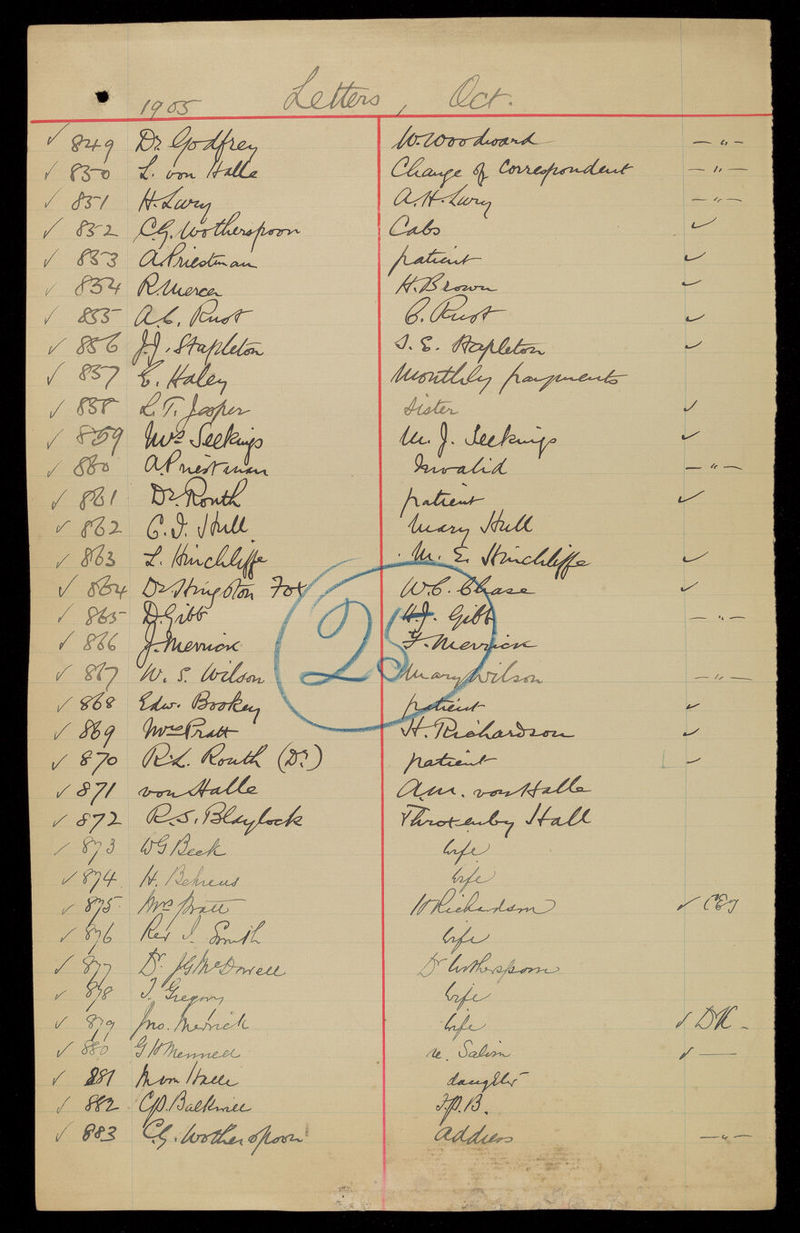 1905 Letters, Oct.
✓ 849 Dr. Godfrey W. Woodward — " —
✓ 850 L. von Halle Change of Correspondent — " —
✓ 851 H. Lury A. H. Lury — " —
✓ 852 C.G. Wotherspoon Cabs ✓
✓ 853 A. Priestman patient ✓
✓ 854 R. Mercer H. Brown ✓
✓ 855 A.C. Rust C. Rust ✓
✓ 856 J.J. Stapleton S. E. Stapleton ✓
✓ 857 E. Haley Monthly payments
✓ 858 L. T. Jasper sister ✓
✓ 859 Mrs Seekings M. J. Seekings ✓
✓ 860 A. Priestman Invalid — " —
✓ 861 Dr. Routh patient ✓
✓ 862 C. I. Hull Mary Hull
✓ 863 L. Hinchliffe M. E. Hinchliffe ✓
✓ 864 Dr Hingston Fox W.C. Chase ✓
✓ 865 D. Gibb H.J. Gibb — " —
25
✓ 866 J. Merrick F. Merrick
✓ 867 W. S. Wilson Mary Wilson — " —
✓ 868 Edw. Bookey patient ✓
✓ 869 Mrs Pratt H. Richardson ✓
✓ 870 R.L. Routh (Dr) patient ✓
✓ 871 von Halle A.M. von Halle
✓ 872 R. S. Blaylock Throxenby Hall
✓ 873 WG Beck Wife
✓ 874 H. Behrens Wife
✓ 875 Mrs Pratt H Richardson ✓
✓ 876 Rev J. Smith Wife
✓ 877 Dr. JG McDowell Dr Wotherspoon
✓ 878 T. Gregory Wife
✓ 879 Jno. Merrick Wife ✓ DK -
✓ 880 G H Mennell ✓ —
✓ 881 M von Halle daughter
✓ 882 C.P. Balkwill F.P.B.
✓ 883 C.G. Wotherspoon Address — " —